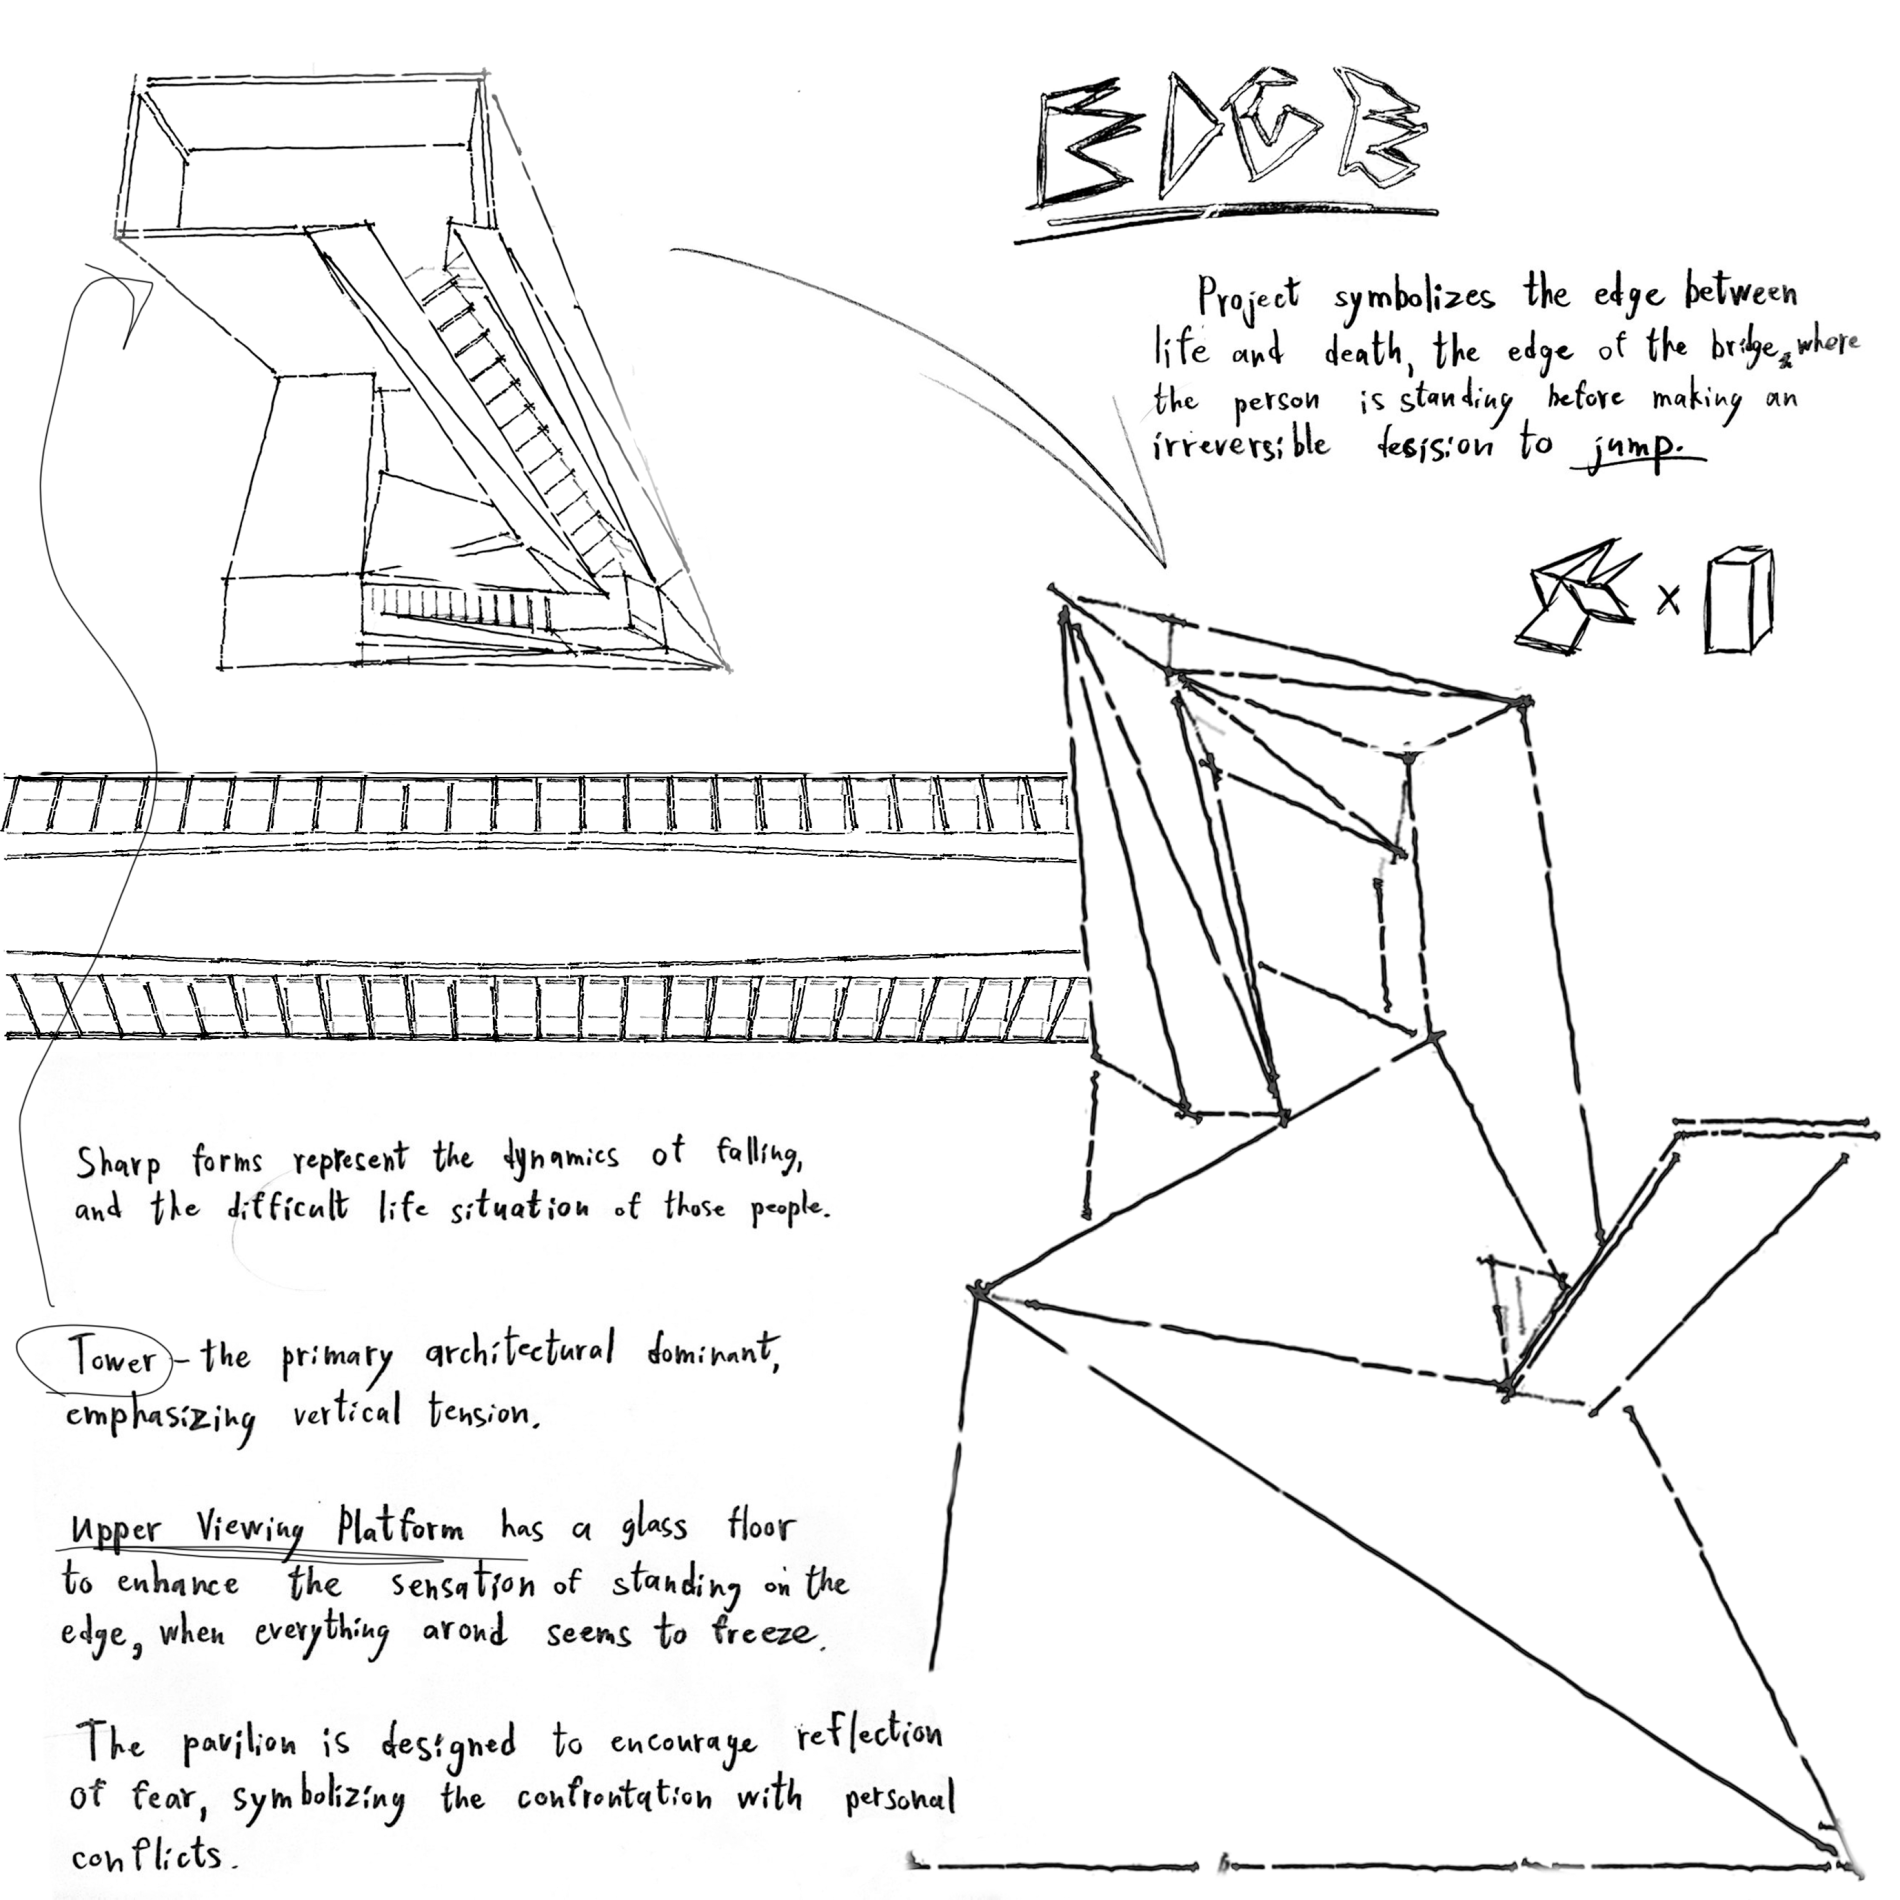 EDGE
Project symbolizes the edge between
life and death, the edge of the bridge, where
the person is standing before making an
irreversible desision to jump.
x
Sharp forms represent the dynamics of falling,
and the difficult life situation of those people.
Tower - the primary architectural dominant,
emphasizing vertical tension.
Upper Viewing Platform has a glass floor
to enhance the sensation of standing on the
edge, when everything arond seems to freeze.
The pavilion is designed to encourage reflection
of fear, symbolizing the confrontation with personal
conflicts.